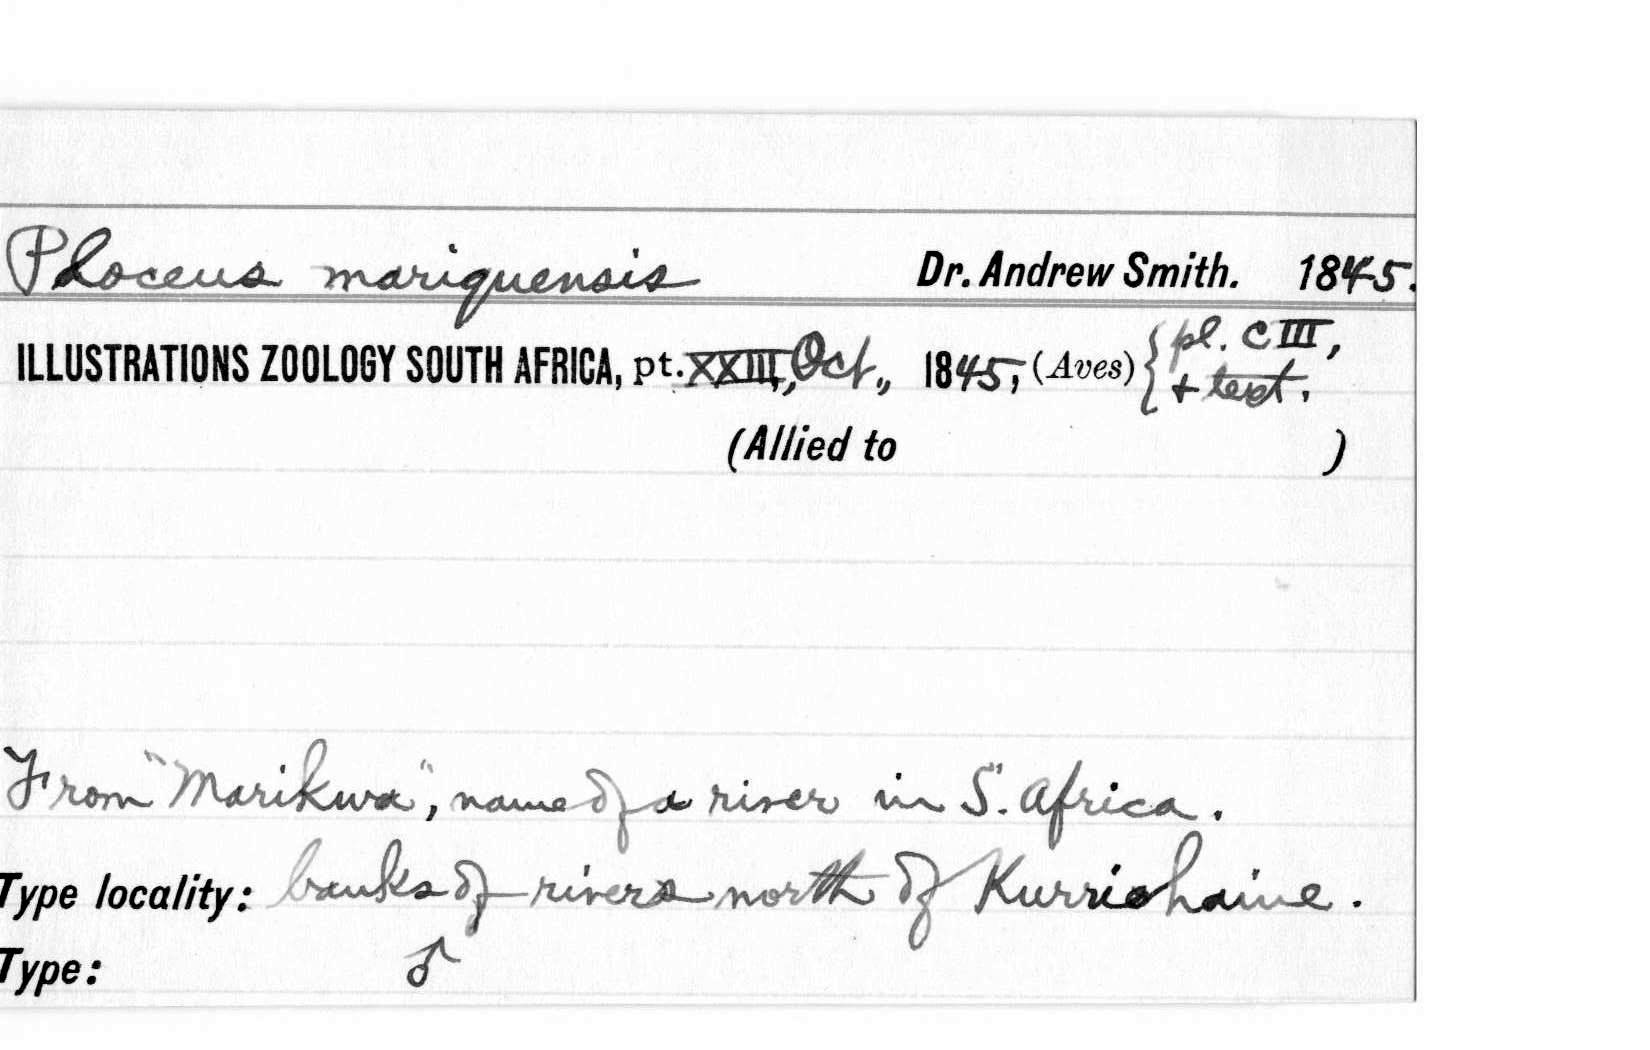 Ploceus mariquensis Dr. Andrew Smith. 1845.
ILLUSTRATIONS ZOOLOGY SOUTH AFRICA, pt. XXIII, Oct., 1845, (Aves) { pl. CIII,
+ text.
(Allied to )
From "Marikwa", name of a river in S. Africa.
Type locality: banks of rivers north of Kurrichaine.
Type: ♂